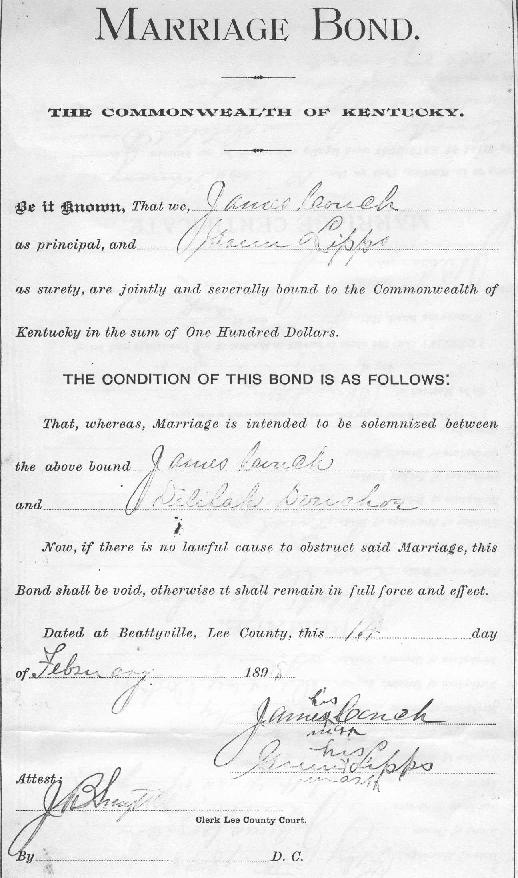 MARRIAGE BOND.
THE COMMONWEALTH OF KENTUCKY.
Be it Known, That we, James Couch
as principal, and Lipps
as surety, are jointly and severally bound to the Commonwealth of
Kentucky in the sum of One Hundred Dollars.
THE CONDITION OF THIS BOND IS AS FOLLOWS:
That, whereas, Marriage is intended to be solemnized between
the above bound James Couch
and Delilah
Now, if there is no lawful cause to obstruct said Marriage, this
Bond shall be void, otherwise it shall remain in full force and effect.
Dated at Beattyville, Lee County, this day
of February 1898
his
James Couch
mark
his
Lipps
mark
Attest:
J
Clerk Lee County Court.
By D. C.